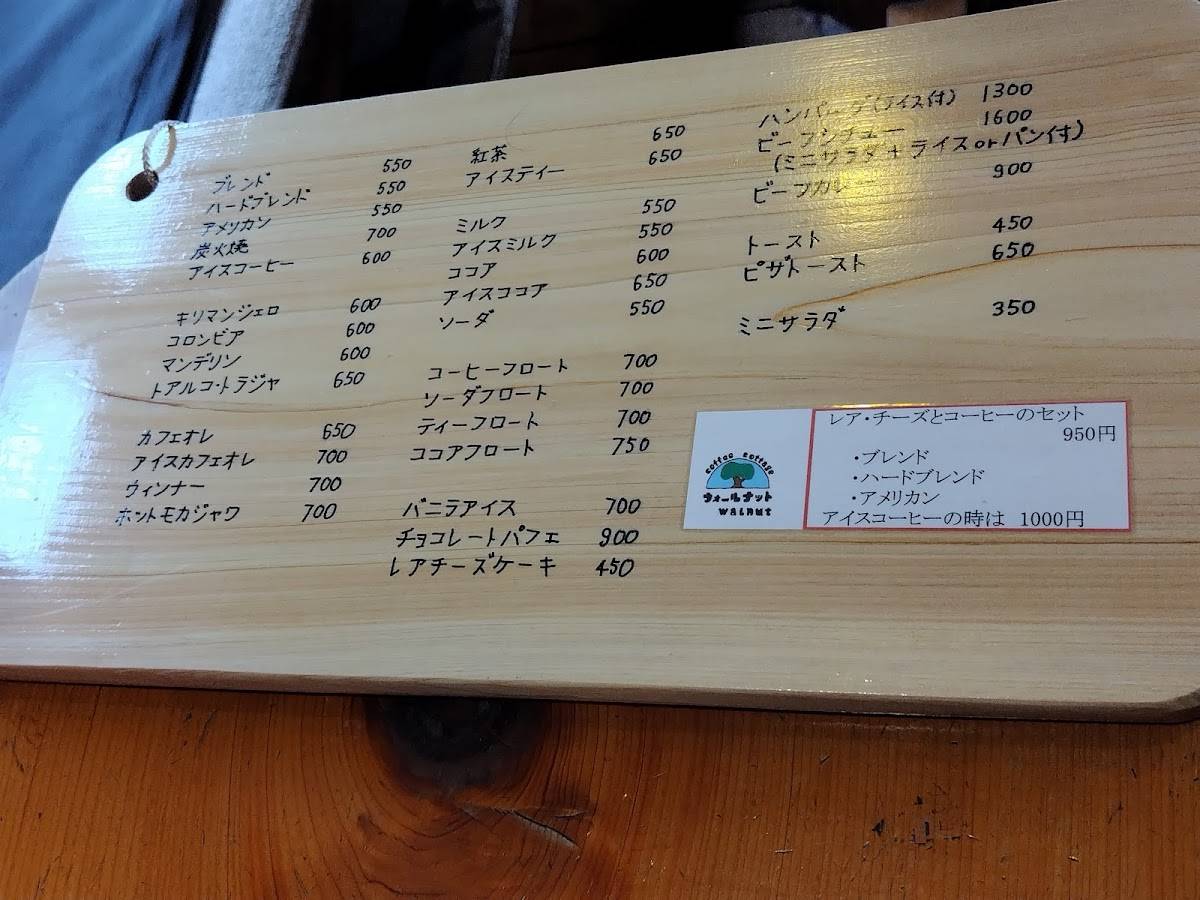 ブレンド 550
ハードブレンド 550
アメリカン 550
炭火焼 700
アイスコーヒー 600
キリマンジェロ 600
コロンビア 600
マンデリン 600
トアルコ・トラジャ 650
カフェオレ 650
アイスカフェオレ 700
ウィンナー 700
ホットモカジャワ 700
紅茶 650
アイスティー 650
ミルク 550
アイスミルク 550
ココア 600
アイスココア 650
ソーダ 550
コーヒーフロート 700
ソーダフロート 700
ティーフロート 700
ココアフロート 750
バニラアイス 700
チョコレートパフェ 900
レアチーズケーキ 450
ハンバーグ(ライス付) 1300
ビーフシチュー 1600
(ミニサラダ+ライスorパン付)
ビーフカレー 900
トースト 450
ピザトースト 650
ミニサラダ 350
coffee cottage
ウォールナット
WALNUT
レア・チーズとコーヒーのセット
950円
・ブレンド
・ハードブレンド
・アメリカン
アイスコーヒーの時は 1000円